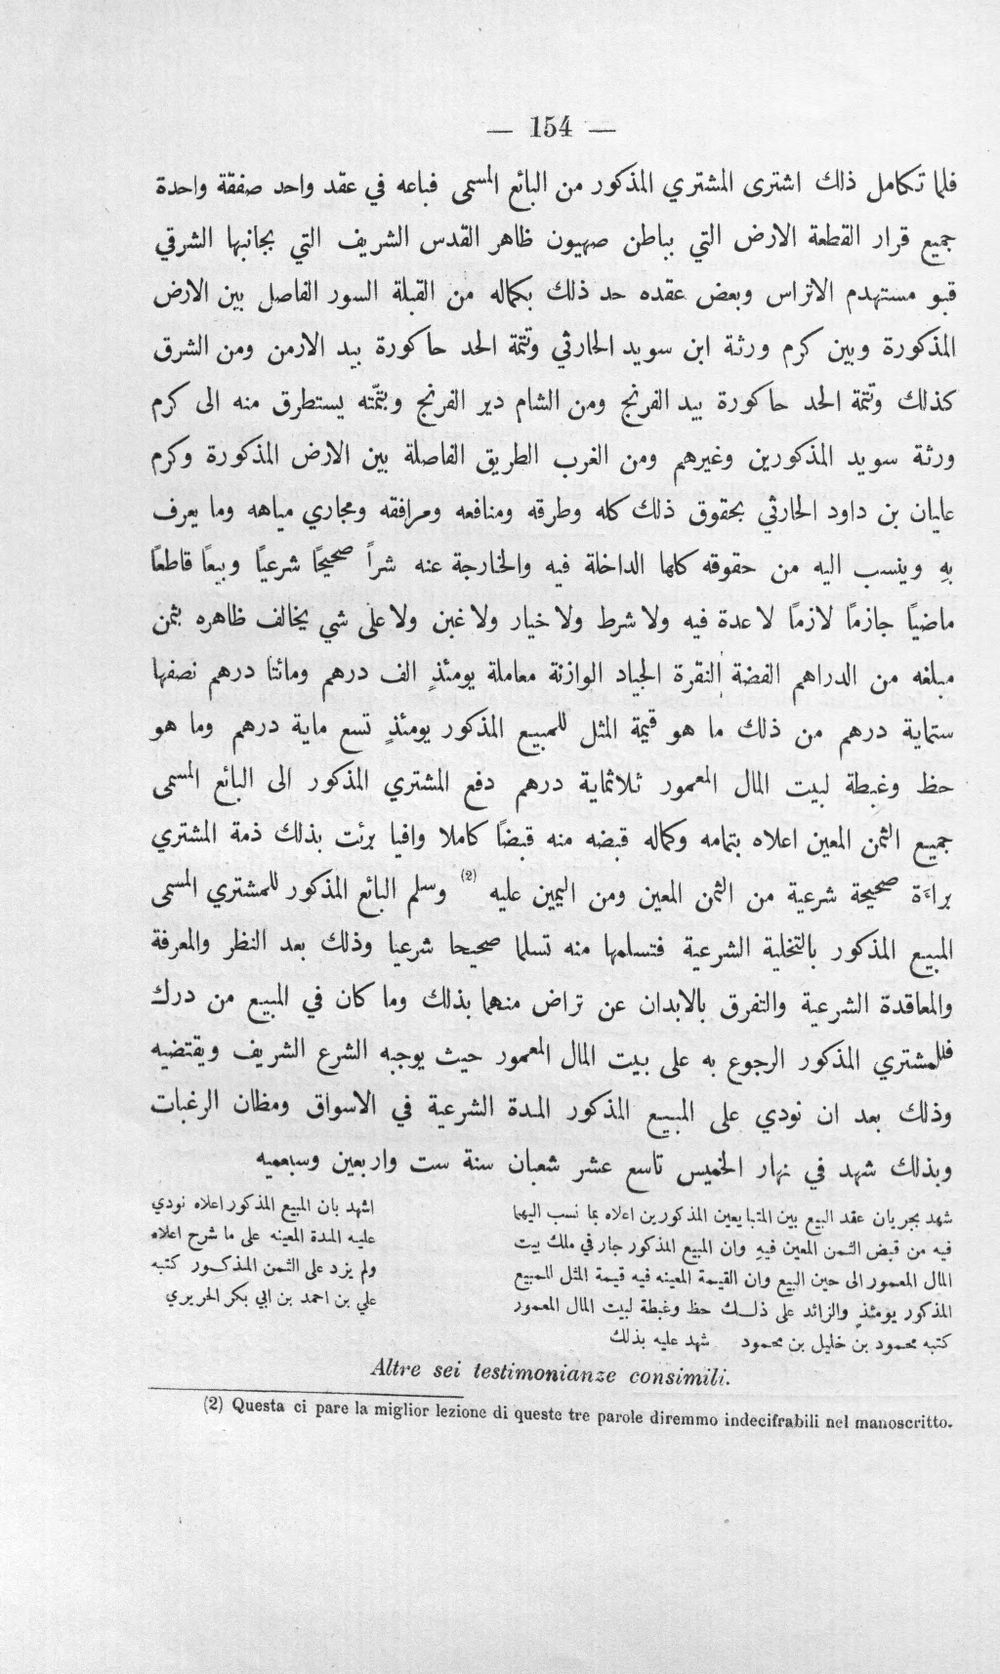 — 154 —
فلما تكامل ذلك اشترى المشتري المذكور من البائع المسمى فباعه في عقد واحد صفقة واحدة
جميع قرار القطعة الارض التي بباطن صهيون ظاهر القدس الشريف التي بجانبها الشرقي
قبو مستهدم الاتراس وبعض عقده حد ذلك بكماله من القبلة السور الفاصل بين الارض
المذكورة وبين كرم ورثة ابن سويد الحارثي وتتمة الحد حاكورة بيد الارمن ومن الشرق
كذلك وتتمة الحد حاكورة بيد الفرنج ومن الشام دير الفرنج وبتمّته يستطرق منه الى كرم
ورثة سويد المذكورين وغيرهم ومن الغرب الطريق الفاصلة بين الارض المذكورة وكرم
عليان بن داود الحارثي بحقوق ذلك كله وطرقه ومنافعه ومرافقه ومجاري مياهه وما يعرف
بهِ وينسب اليه من حقوقه كلها الداخلة فيه والخارجة عنه شراً صحيحًا شرعيًا وبيعًا قاطعًا
ماضيًا جازمًا لازمًا لا عدة فيه ولا شرط ولا خيار ولا غبن ولا على شي يخالف ظاهره بثمن
مبلغه من الدراهم الفضة النقرة الجياد الوازنة معاملة يومئذٍ الف درهم ومائتا درهم نصفها
ستماية درهم من ذلك ما هو قيمة المثل للمبيع المذكور يومئذٍ تسع ماية درهم وما هو
حظ وغبطة لبيت المال المعمور ثلاثماية درهم دفع المشتري المذكور الى البائع المسمى
جميع الثمن المعين اعلاه بتمامه وكماله قبضه منه قبضًا كاملا وافيا برئت بذلك ذمة المشتري
براءة صحيحة شرعية من الثمن المعين ومن اليمين عليه (2) وسلم البائع المذكور للمشتري المسمى
المبيع المذكور بالتخلية الشرعية فتسلمها منه تسلما صحيحا شرعيا وذلك بعد النظر والمعرفة
والمعاقدة الشرعية والتفرق بالابدان عن تراض منهما بذلك وما كان في المبيع من درك
فللمشتري المذكور الرجوع به على بيت المال المعمور حيث يوجبه الشرع الشريف ويقتضيه
وذلك بعد ان نودي على المبيع المذكور المدة الشرعية في الاسواق ومظان الرغبات
وبذلك شهد في نهار الخميس تاسع عشر شعبان سنة ست واربعين وسبعميه
شهد بجريان عقد البيع بين المتبايعين المذكورين اعلاه بما نسب اليهما
فيه من قبض الثمن المعين فيهِ وان المبيع المذكور جار في ملك بيت
المال المعمور الى حين البيع وان القيمة المعينه فيه قيمة المثل للمبيع
المذكور يومئذٍ والزائد على ذلك حظ وغبطة لبيت المال المعمور
كتبه محمود بن خليل بن محمود شهد عليه بذلك
اشهد بان المبيع المذكور اعلاه نودي
عليه المدة المعينه على ما شرح اعلاه
ولم يزد على الثمن المذكور كتبه
علي بن احمد بن ابي بكر الحريري
Altre sei testimonianze consimili.
(2) Questa ci pare la miglior lezione di queste tre parole diremmo indecifrabili nel manoscritto.